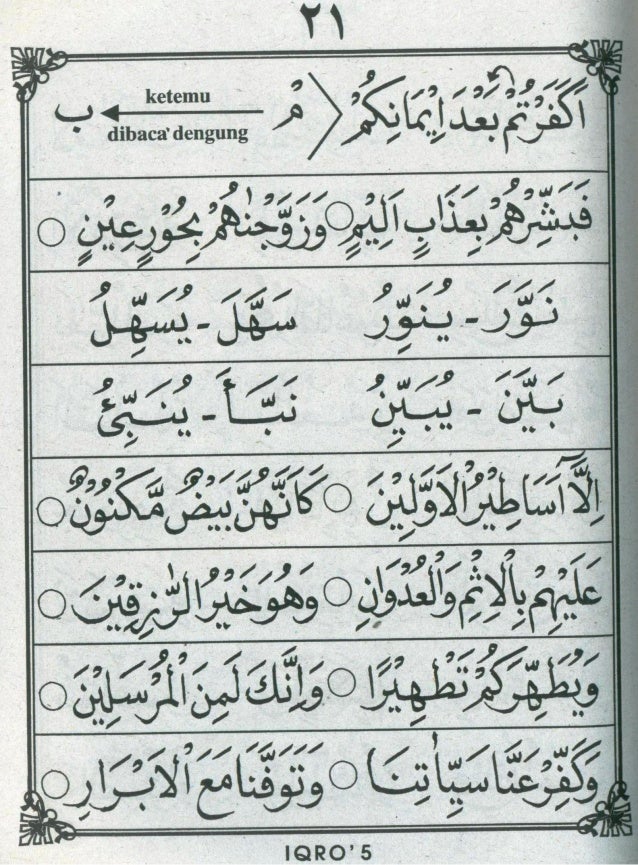 ٢١
اَكَفَرْتُمْ بَعْدَ اِيْمَانِكُمْ < مْ ketemu ب
dibaca' dengung
فَبَشِّرْهُمْ بِعَذَابٍ اَلِيْمٍ ○ وَزَوَّجْنٰهُمْ بِحُوْرٍ عِيْنٍ ○
نَوَّرَ - يُنَوِّرُ سَهَّلَ - يُسَهِّلُ
بَيَّنَ - يُبَيِّنُ نَبَّأَ - يُنَبِّئُ
اِلَّآ اَسَاطِيْرُ الْاَوَّلِيْنَ ○ كَاَنَّهُنَّ بَيْضٌ مَّكْنُوْنٌ ○
عَلَيْهِمْ بِالْاِثْمِ وَالْعُدْوَانِ ○ وَهُوَ خَيْرُ الرّٰزِقِيْنَ ○
وَيُطَهِّرَكُمْ تَطْهِيْرًا ○ وَاِنَّكَ لَمِنَ الْمُرْسَلِيْنَ ○
وَكَفِّرْ عَنَّا سَيِّاٰتِنَا ○ وَتَوَفَّنَا مَعَ الْاَبْرَارِ ○
IQRO' 5